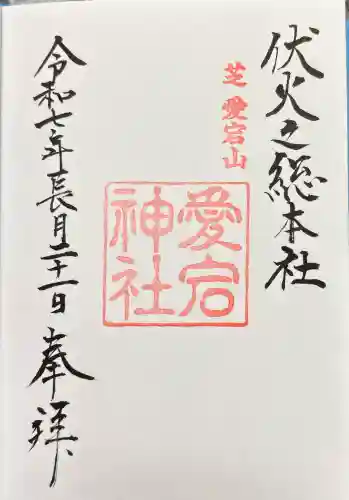 伏火之総本社
芝愛宕山
愛宕
神社
令和七年長月二十一日
奉拝